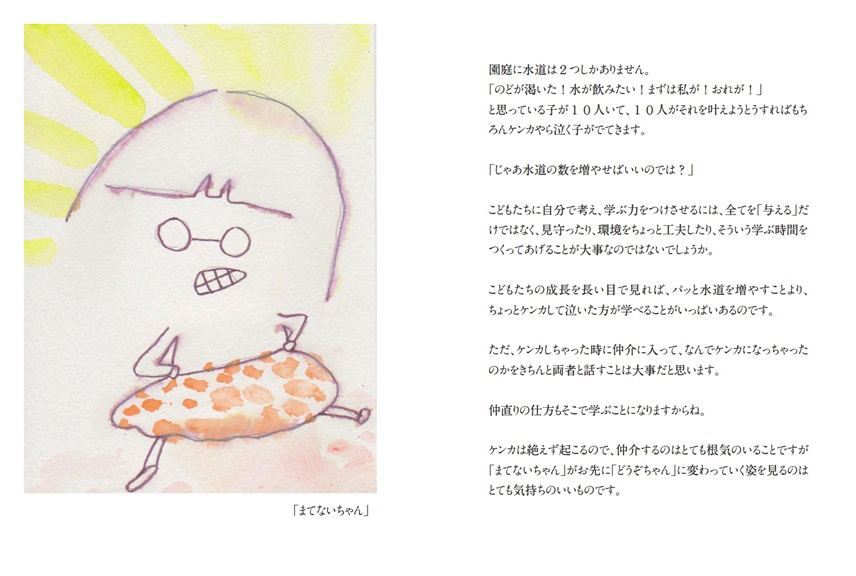 園庭に水道は２つしかありません。
「のどが渇いた！水が飲みたい！まずは私が！おれが！」
と思っている子が１０人いて、１０人がそれを叶えようとうすればもち
ろんケンカやら泣く子がでてきます。
「じゃあ水道の数を増やせばいいのでは？」
こどもたちに自分で考え、学ぶ力をつけさせるには、全てを「与える」だ
けではなく、見守ったり、環境をちょっと工夫したり、そういう学ぶ時間を
つくってあげることが大事なのではないでしょうか。
こどもたちの成長を長い目で見れば、パッと水道を増やすことより、
ちょっとケンカして泣いた方が学べることがいっぱいあるのです。
ただ、ケンカしちゃった時に仲介に入って、なんでケンカになっちゃった
のかをきちんと両者と話すことは大事だと思います。
仲直りの仕方もそこで学ぶことになりますからね。
ケンカは絶えず起こるので、仲介するのはとても根気のいることですが
「まてないちゃん」がお先に「どうぞちゃん」に変わっていく姿を見るのは
とても気持ちのいいものです。
「まてないちゃん」